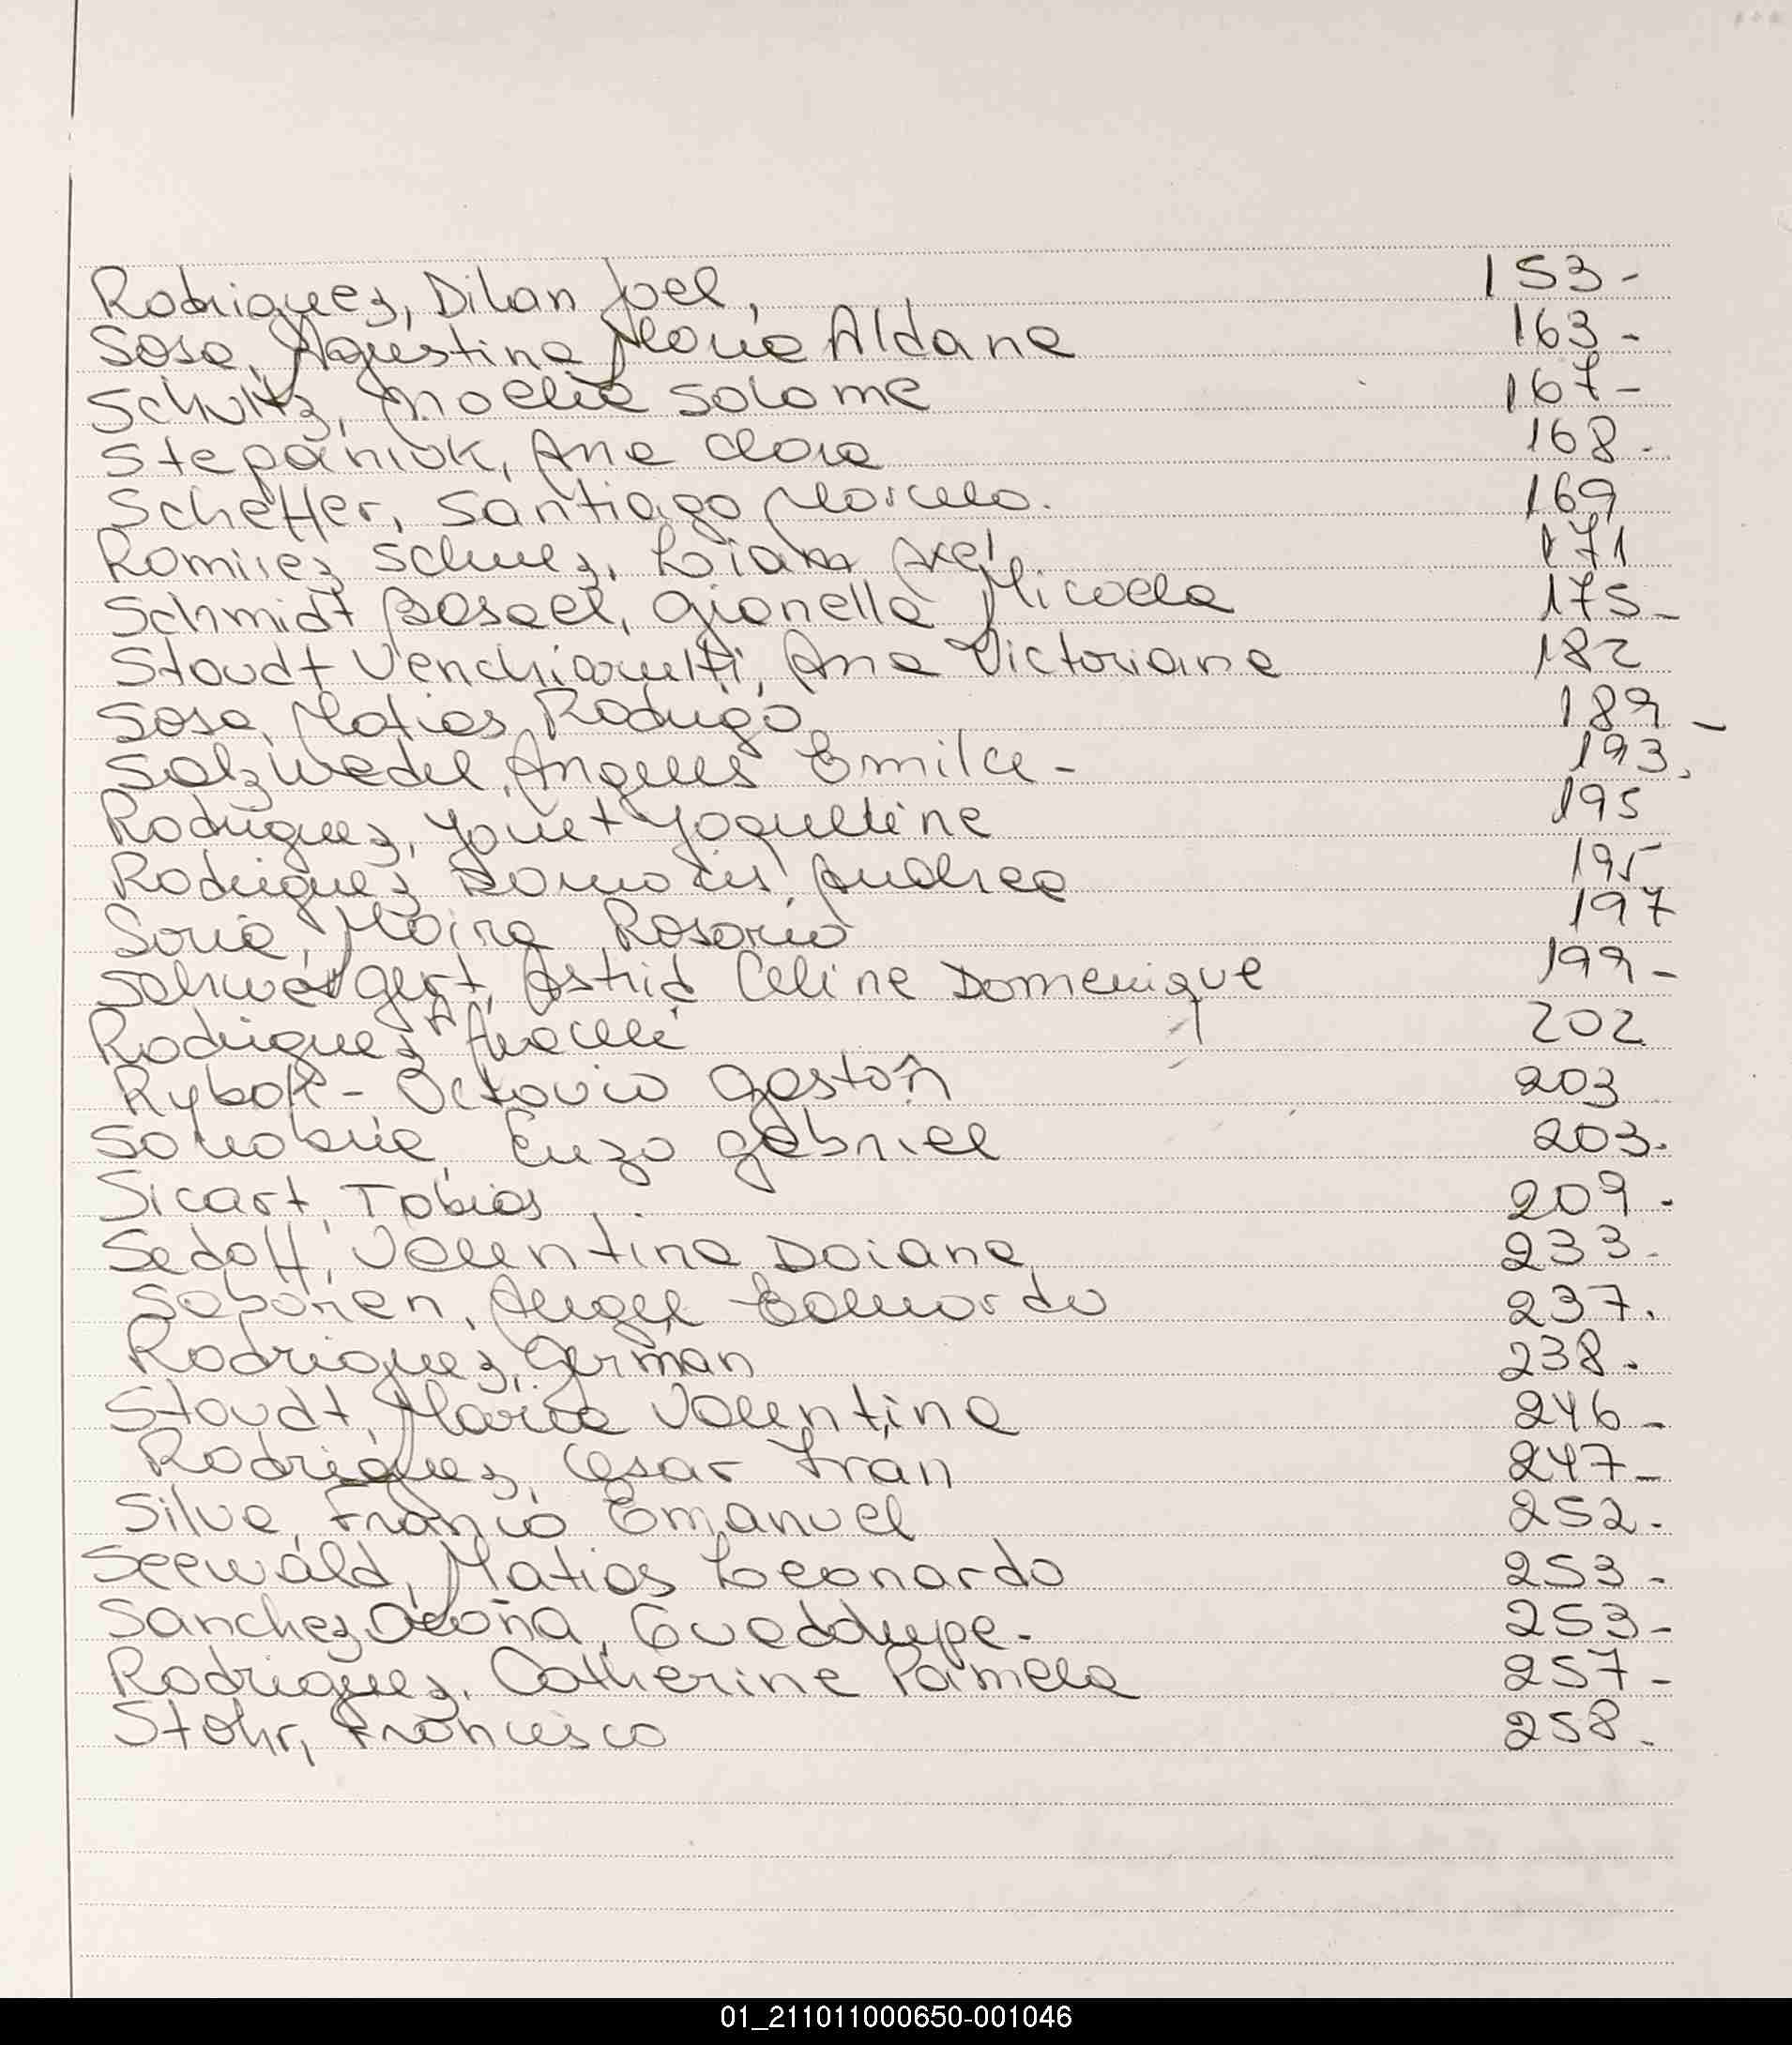 Rodriguez, Dilan Joel, 153-
Sosa, Agustina Maria Aldana 163-
Schultz, Noelia Solome 167-
Stepaniuk, Ana Clara 168.
Scheffer, Santiago Marcelo. 169
Ramirez Liam Axel, 171
Schmidt Gianella Micaela 175-
Staudt Ana Victoriana 182
Sosa, Matias Rodrigo 189-
Salzwedel, Angeles Emilce- 193.
Rodriguez, 195
Rodriguez Andrea 195
Soria, Moira Rosario 197
Schweigert, Astrid Celine Domenique 199-
Rodriguez Aracelli 202
Rybak- Octavio Gastón 203
Enzo Gabriel 203.
Sicart, Tobias 209.
Sedoff, Valentina Daiana 233-
Angel Eduardo 237.
Rodriguez, German 238.
Staudt, Maria Valentina 246-
Rodriguez, Cesar Fran 247-
Silva, Franco Emanuel 252.
Seewald, Matias Leonardo 253-
Sanchez 253-
Rodriguez, Catherine Pamela 257-
Stohr, Francisco 258.
01_211011000650-001046